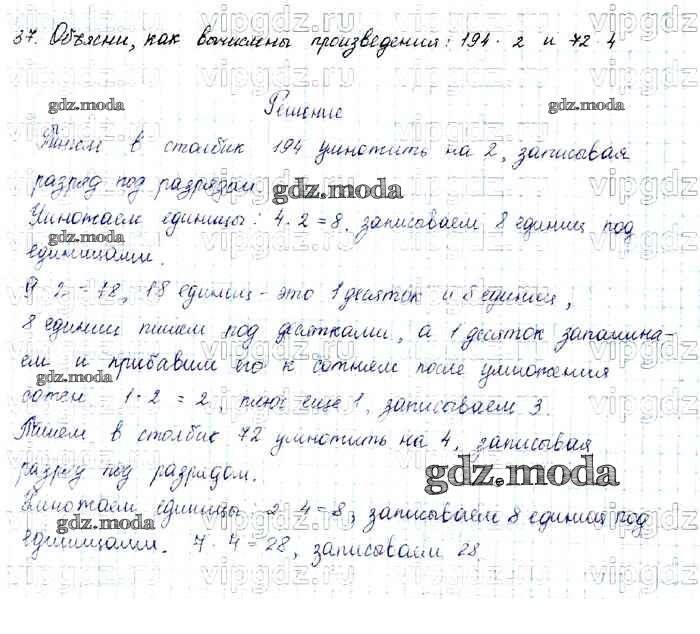 37. Объясни, как вычислены произведения: 194 · 2 и 72 · 4
Решение
Пишем в столбик 194 умножить на 2, записывая
разряд под разрядом.
Умножаем единицы: 4 · 2 = 8, записываем 8 единиц под
единицами.
9 · 2 = 18, 18 единиц - это 1 десяток и 8 единиц,
8 единиц пишем под десятками, а 1 десяток запомина-
ем и прибавим его к сотням после умножения
сотен 1 · 2 = 2, плюс еще 1, записываем 3.
Пишем в столбик 72 умножить на 4, записывая
разряд под разрядом.
Умножаем единицы 2 · 4 = 8, записываем 8 единиц под
единицами. 7 · 4 = 28, записываем 28.
gdz.moda
gdz.moda
gdz.moda
gdz.moda
gdz.moda
gdz.moda
gdz.moda
vipgdz.ru